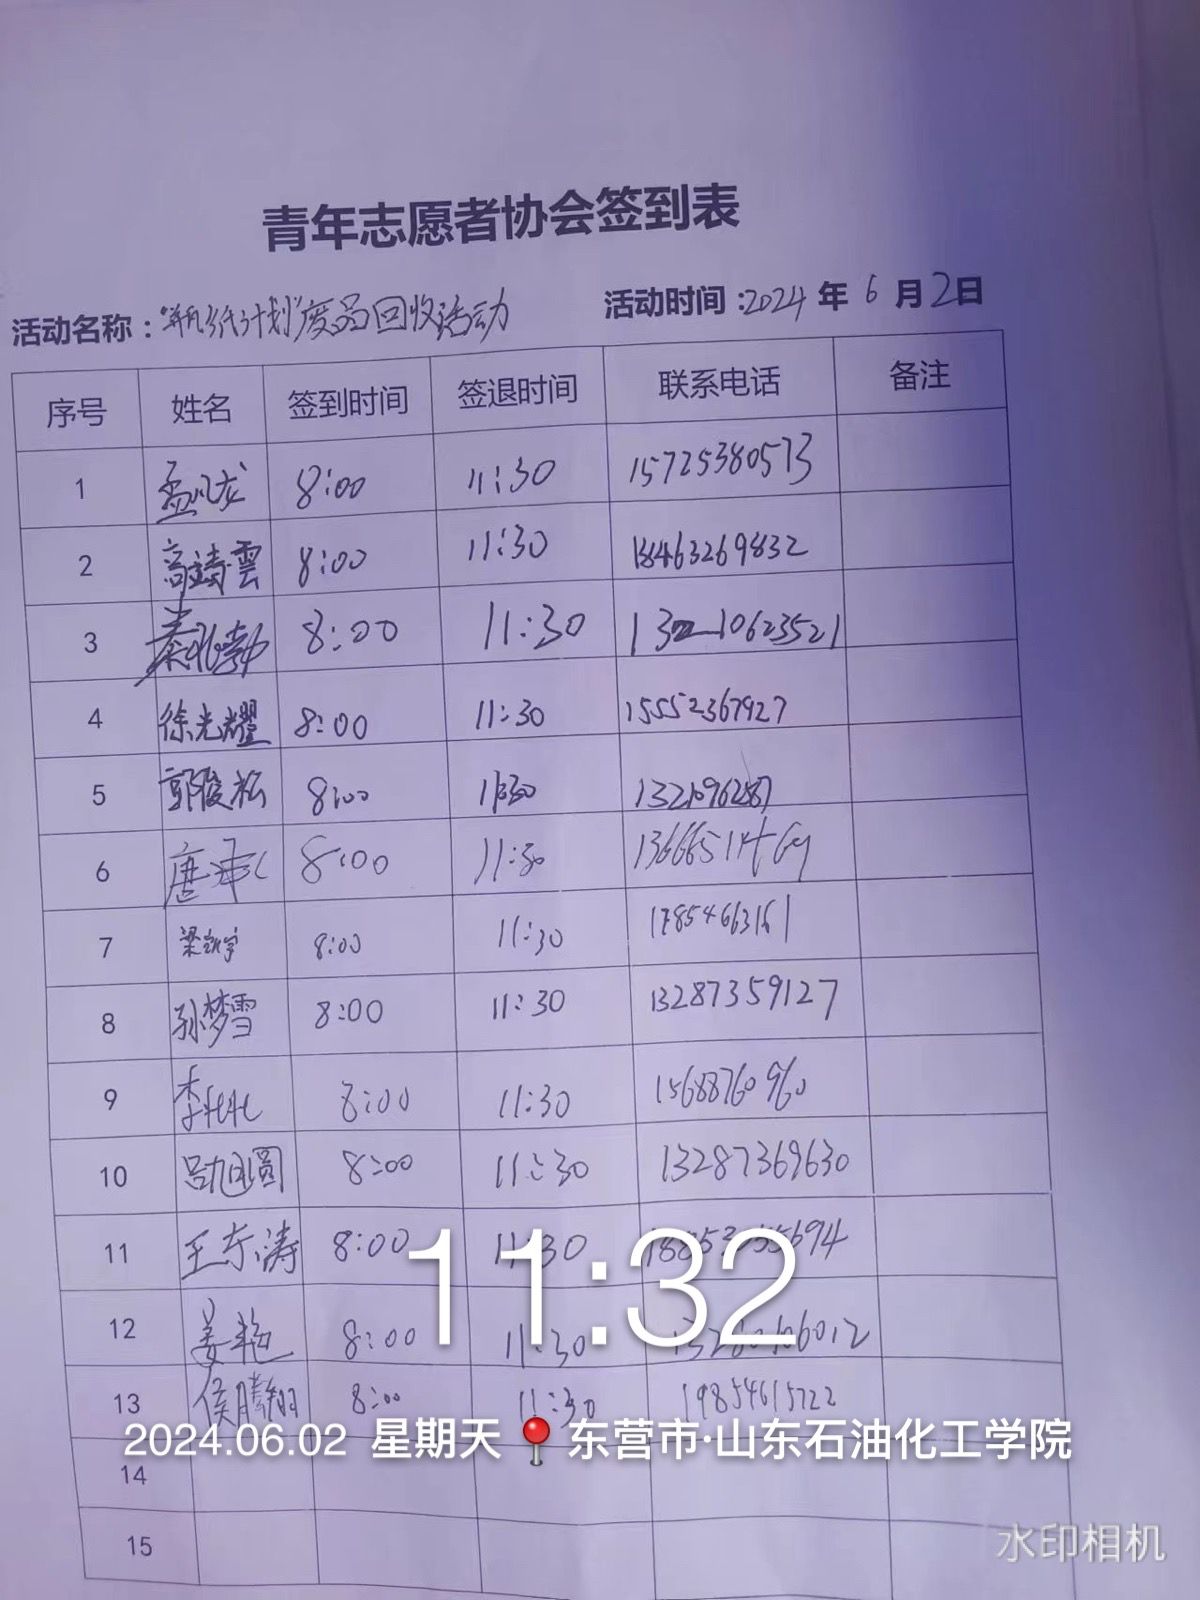 青年志愿者协会签到表
活动名称："瓶纸计划"废品回收活动 活动时间：2024 年 6 月 2 日
序号 姓名 签到时间 签退时间 联系电话 备注
1 孟凡龙 8:00 11:30 15725380573
2 高靖雲 8:00 11:30 18463269832
3 秦兆勃 8:00 11:30 13210623521
4 徐光耀 8:00 11:30 15552367927
5 郭俊松 8:00 11:30
6 唐 8:00 11:30
7 梁凯宇 8:00 11:30 17854663161
8 孙梦雪 8:00 11:30 13287359127
9 李彬彬 8:00 11:30 15688760960
10 吕旭圆 8:00 11:30 13287369630
11 王东涛 8:00 11:30
12 姜艳 8:00 11:30
13 侯腾翔 8:00 11:30 19854615722
14
15
11:32
2024.06.02 星期天 东营市·山东石油化工学院
水印相机